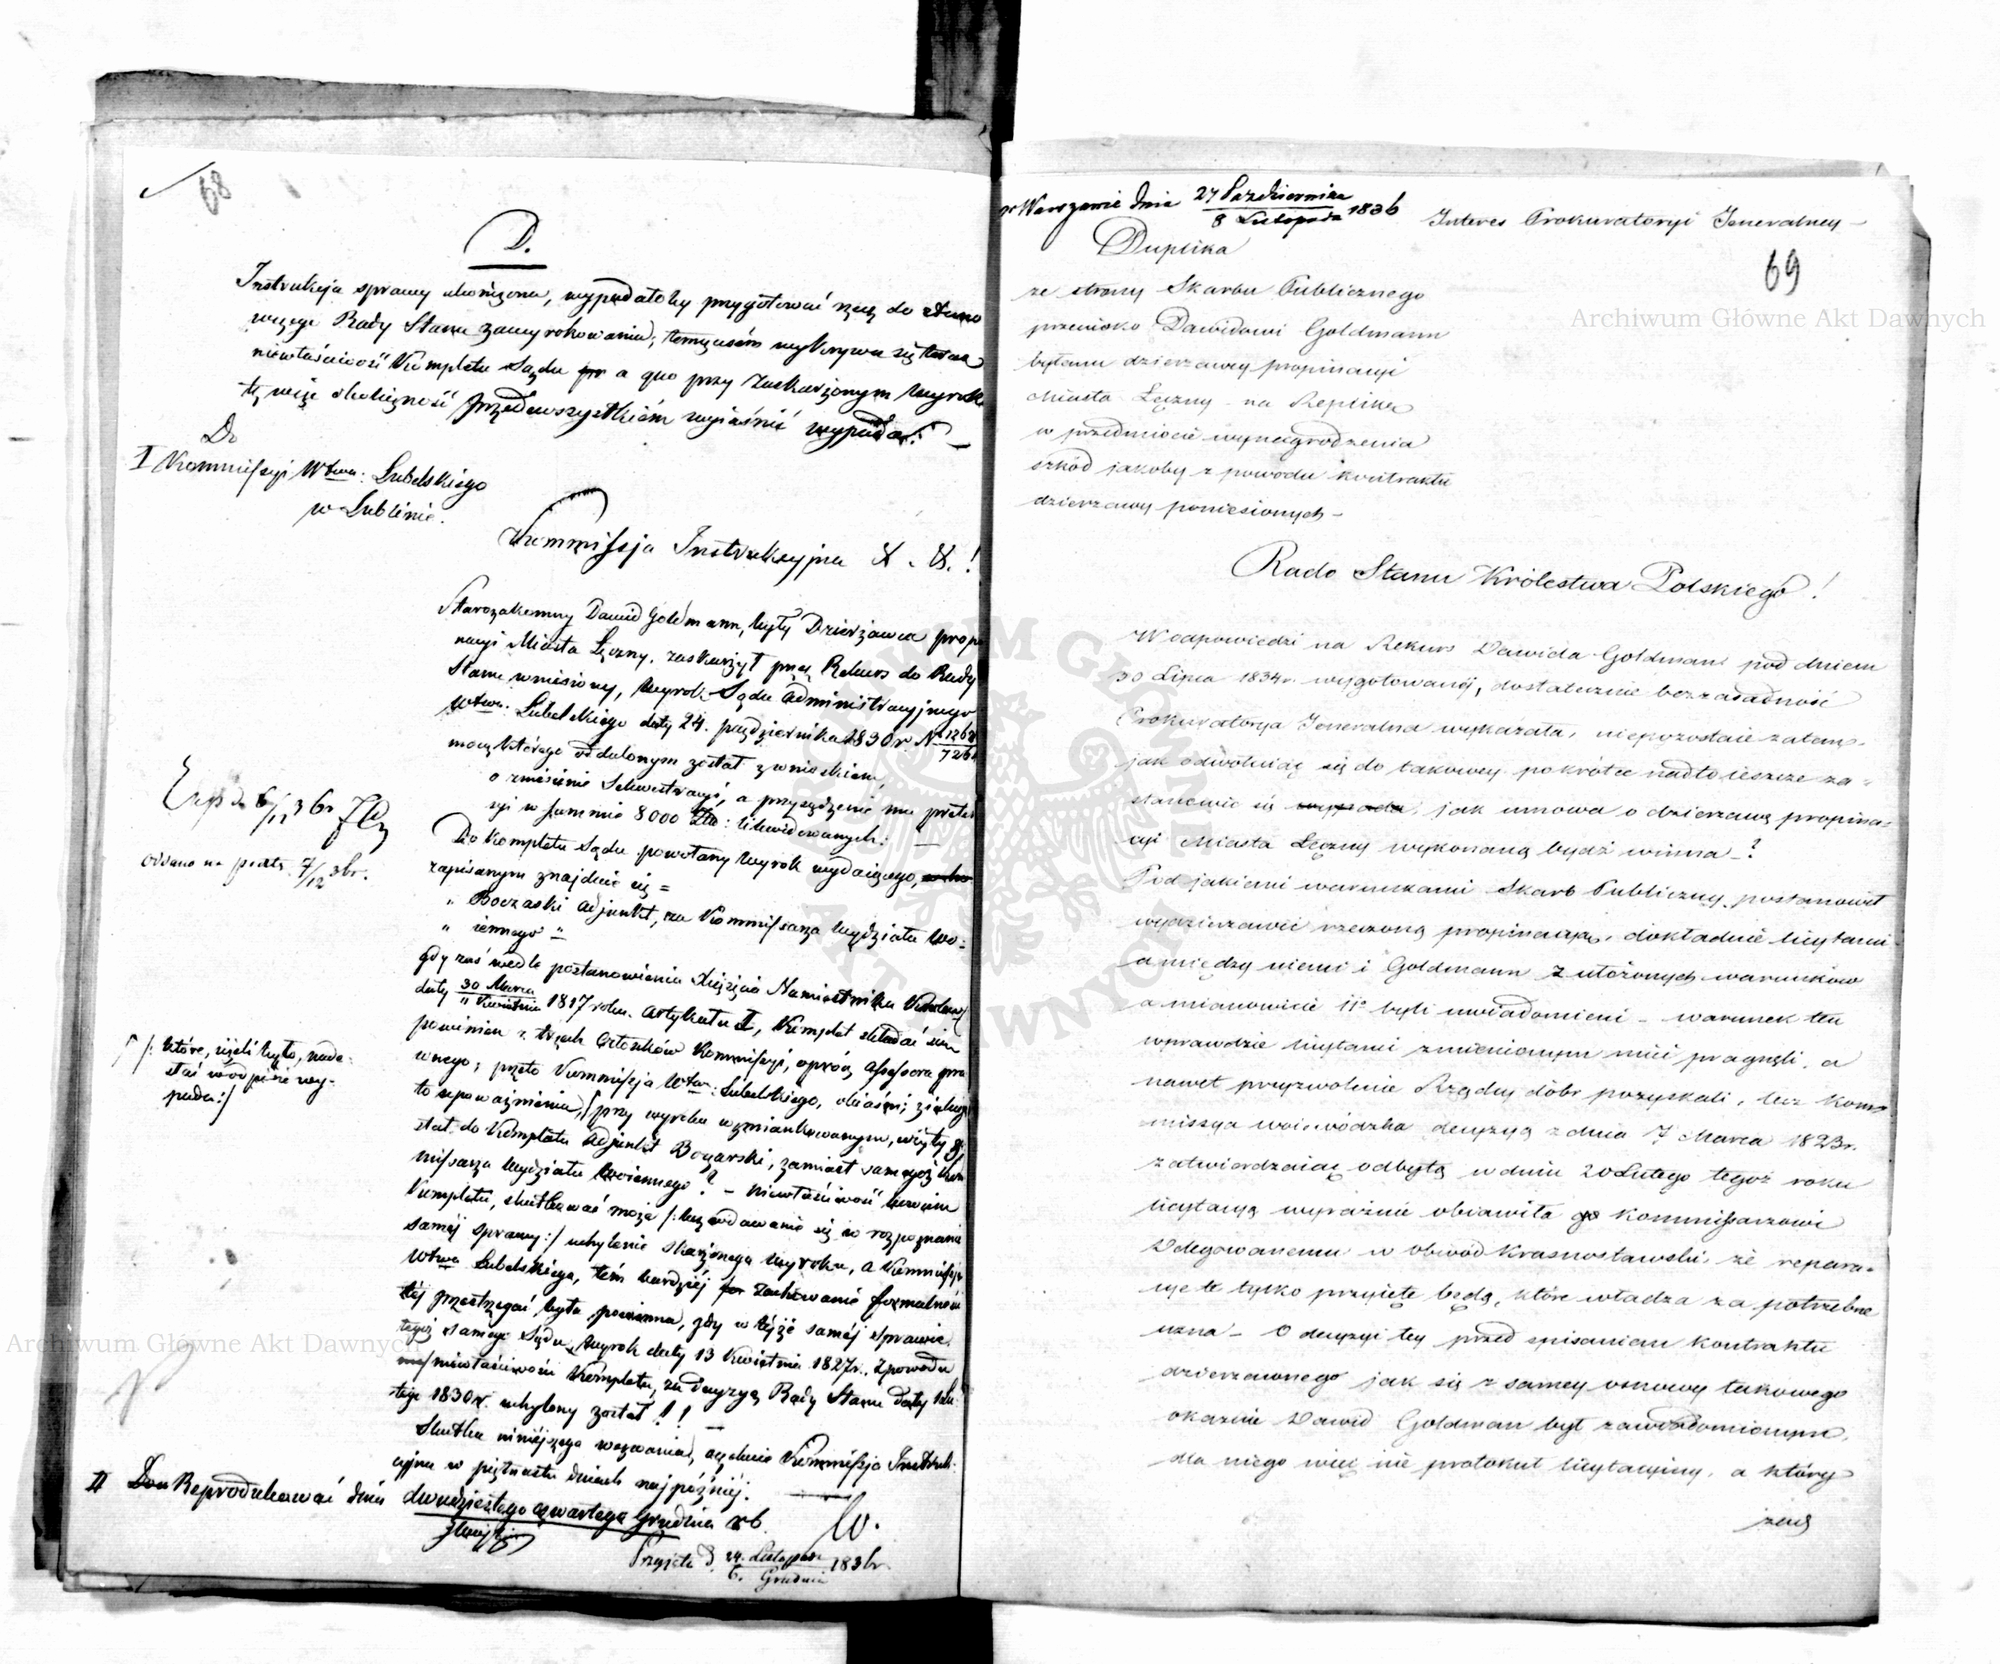 68
D.
Instrukcja sprawy ukończona, wypadałoby przygotować rzecz do
Rady Stanu zawyrokowania; tymczasem wykrywa się
niewłaściwość Kompletu Sądu a quo przy zaskarżonym wyroku
tę więc okoliczność przedewszystkiém wyjaśnić wypada: —
Do
I Kommissyi Wtwa: Lubelskiego
w Lublinie.
Kommissja Instrukcyjna
Starozakonny Dawid Goldmann, były Dzierżawca propi
nacyi Miasta Łęczny, zaskarżył przez Rekurs do Rady
Stanu wniesiony, wyrok Sądu Administracyjnego
Wtwa. Lubelskiego daty 24. października 1830 r N
mocą którego oddalonym został z wnioskiem
o zniesienie Sekwestracyi, a przysądzenie mu preten
syi w summie 8000 Złp: likwidowanych: —
Do Kompletu Sądu powołany wyrok wydającego,
zapisanym znajduie się =
" Boczaski adjunkt, za Kommissarza Wydziału Wo=
" iennego "
gdy zaś wedle postanowienia Xięzięcia Namiestnika
daty 30 Marca
" Kwietnia 1817 roku. Artykułu I, Komplet składać się
powinien z trzech Członków Kommissyi, oprócz Assessora pra
wnego; przeto Kommissja Wtwa: Lubelskiego, obiaśni; z jakiego
to upoważnienia, przy wyroku wzmiankowanym, wzięty zo
stał do Kompletu Adjunkt Bogarski, zamiast samegoż Kom
missarza Wydziału Woiennego? — niewłaściwość bowiem
Kompletu, skutkować może /: bez wdawania się w rozpoznanie
saméj sprawy:/ uchylenie skarżonego wyroku, a Kommissja
Wtwa Lubelskiego, tém bardziéj zachowanie formalności
téj przestrzegać była powinna, gdy w téjże saméj sprawie
tegoż samego Sądu, wyrok daty 13 Kwietnia 1827r. z powodu
niewłaściwości Kompletu, za decyzyą Rady Stanu daty
tego 1830 r. uchylony został!! —
Skutku niniéjszego wezwania, oczekuie Kommissja Instruk=
cyjna w piętnastu dniach najpóźniéj. —
/: które, iżeli było, nade=
słać w odpisie wy=
pada:/
II Reprodukować dnia dwudziestego czwartego Grudnia rb.
Przyjęto d. 24. Listopada
6. Grudnia 1836r.
w Warszawie dnia 27 Października
8 Listopada 1836
Interes Prokuratoryi Jeneralney —
69
Duplika
ze strony Skarbu Publicznego
przeciwko Dawidowi Goldmann
byłemu dzierżawcy propinacyi
Miasta Łęczny na Replikę
w przedmiocie wynagrodzenia
szkód jakoby z powodu kontraktu
dzierżawy poniesionych —
Rado Stanu Królestwa Polskiego!
W odpowiedzi na Rekurs Dawida Goldmann pod dniem
30 Lipca 1834r. wygotowanéj, dostatecznie bezzasadność
Prokuratorya Jeneralna wykazała, niepozostaie zatem,
jak odwołuiąc się do takowey pokrótce nadto ieszcze za=
stanowić się jak umowa o dzierżawę propina=
cyi Miasta Łęczny wykonaną bydź winna —?
Pod jakiemi warunkami Skarb Publiczny postanowił
wydzierżawić rzeczoną propinacyę, dokładnie licytanci
a między niemi i Goldmann z ułożonych warunków
a mianowicie 11º byli uwiadomieni — warunek ten
wprawdzie licytanci zmienionym mieć pragnęli, a
nawet przyzwolenie Rządcy dóbr pozyskali, lecz Kom=
missya woiewódzka decyzyą z dnia 7 Marca 1823r.
zatwierdzaiąc odbytą w dniu 20 Lutego tegoż roku
licytacyą wyraźnie obiawiła Kommissarzowi
Delegowanemu w obwód Krasnostawski, że repara=
cye te tylko przyięte będą, które władza za potrzebne
uzna — O decyzyi tey przed spisaniem kontraktu
dzierżawnego jak się z samey osnowy takowego
okazuie Dawid Goldman był zawiadomionym,
dla niego więc nie protokuł licytacyiny, a który
Archiwum Główne Akt Dawnych
Archiwum Główne Akt Dawnych